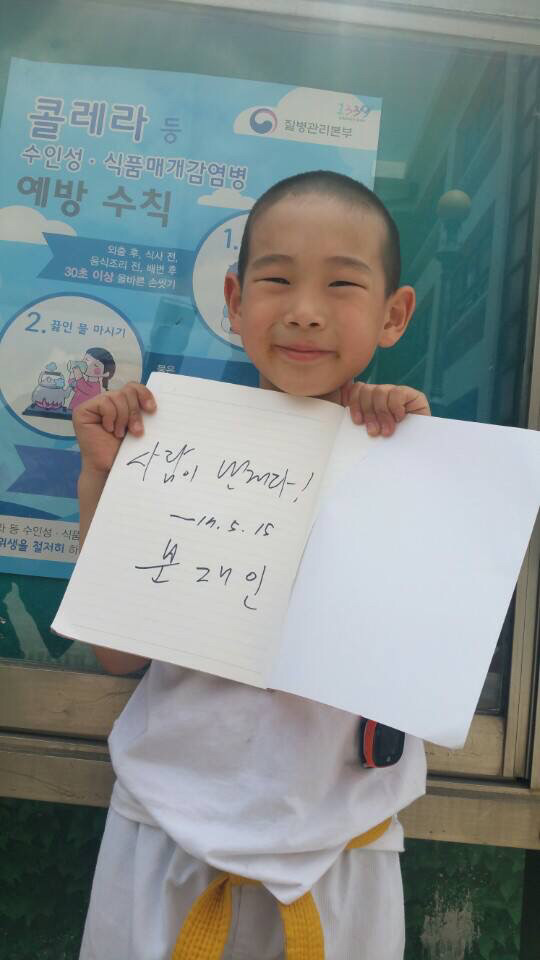 1339
콜레라 등
질병관리본부
수인성·식품매개감염병
예방 수칙
1.
외출 후, 식사 전,
음식조리 전, 배변 후
30초 이상 올바른 손씻기
2. 끓인 물 마시기
물은
사람이 먼저다!
-17.5.15
문재인
라 등 수인성·식품
위생을 철저히 하